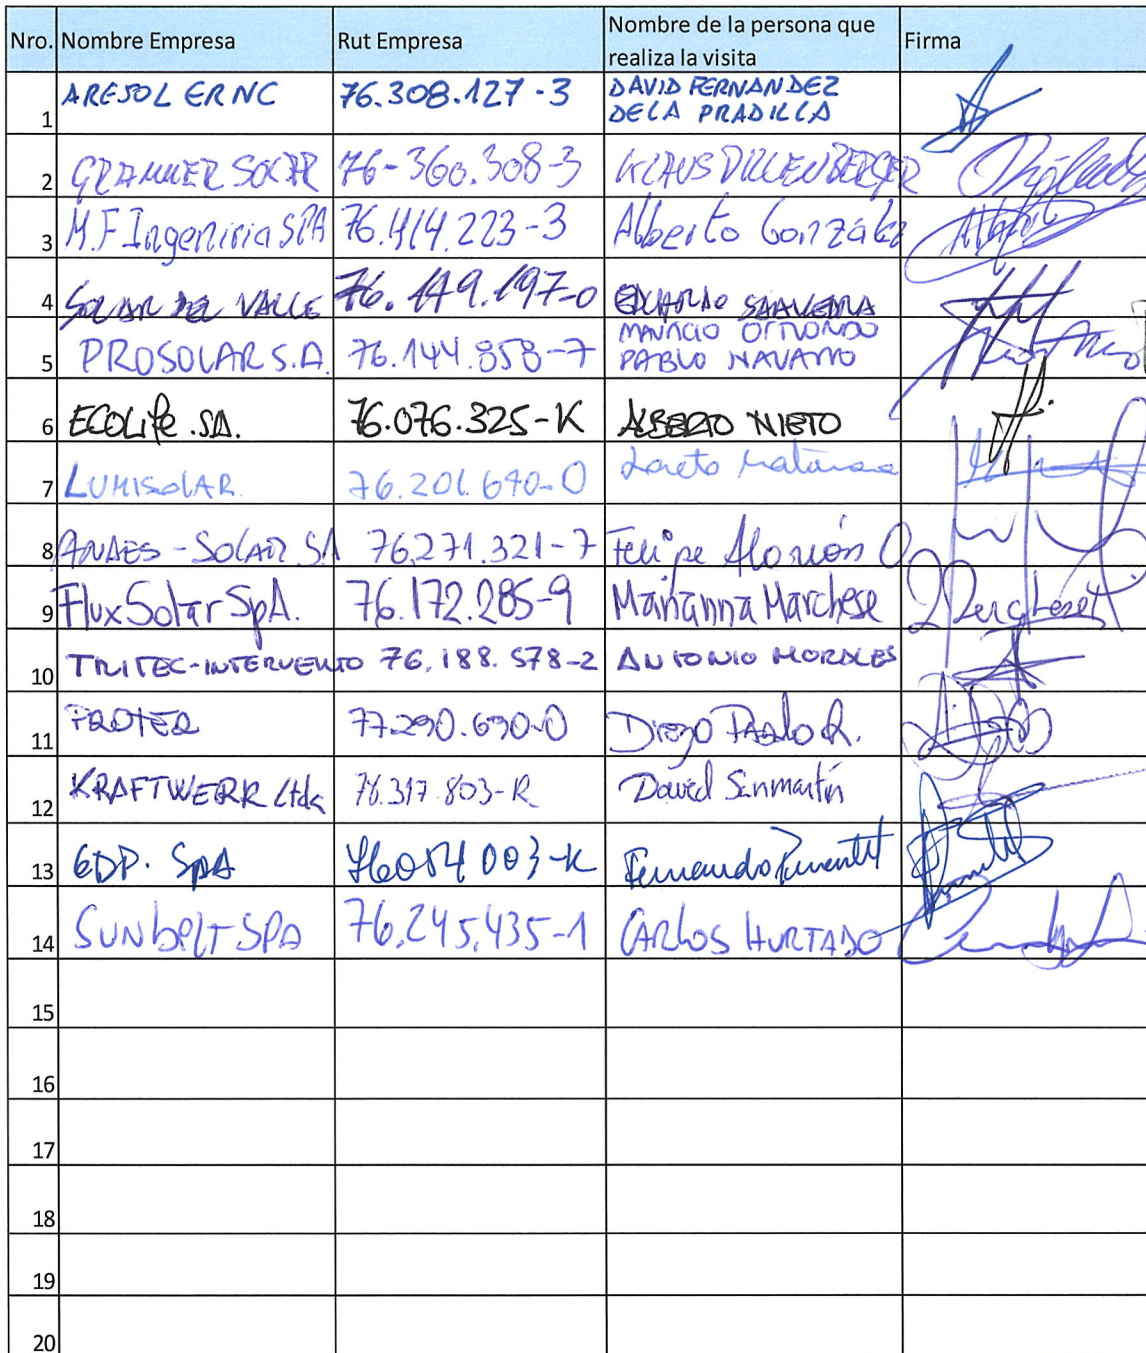 Nro. Nombre Empresa Rut Empresa Nombre de la persona que realiza la visita Firma
1 ARESOL ERNC 76.308.127-3 DAVID FERNANDEZ DE LA PRADILLA
2 GRAMMER SOLAR 76-360.308-3 KLAUS DILLENBERGER
3 M.F Ingenieria SPA 76.414.223-3 Alberto González
4 SOLAR DEL VALLE 76.149.197-0 EDUARDO SAAVEDRA
5 PROSOLAR S.A. 76.144.858-7 MAURICIO PABLO NAVARRO
6 ECOLife .SA. 76.076.325-K ALBERTO NIETO
7 LUMISOLAR. 76.201.640-0 Loreto
8 ANDES-SOLAR SA 76.271.321-7 Felipe
9 Flux Solar SpA. 76.172.285-9 Marianna Marchese
10 TRITEC-INTERVENTO 76.188.578-2 ANTONIO MORALES
11 PROTER 77.290.690-0 Diego Pardo R.
12 KRAFTWERK Ltda 76.317.803-K David Sanmartín
13 EDP. SpA 76084003-K Fernando Pimentel
14 SUNbelt SPA 76.245.435-1 CARLOS HURTADO
15
16
17
18
19
20